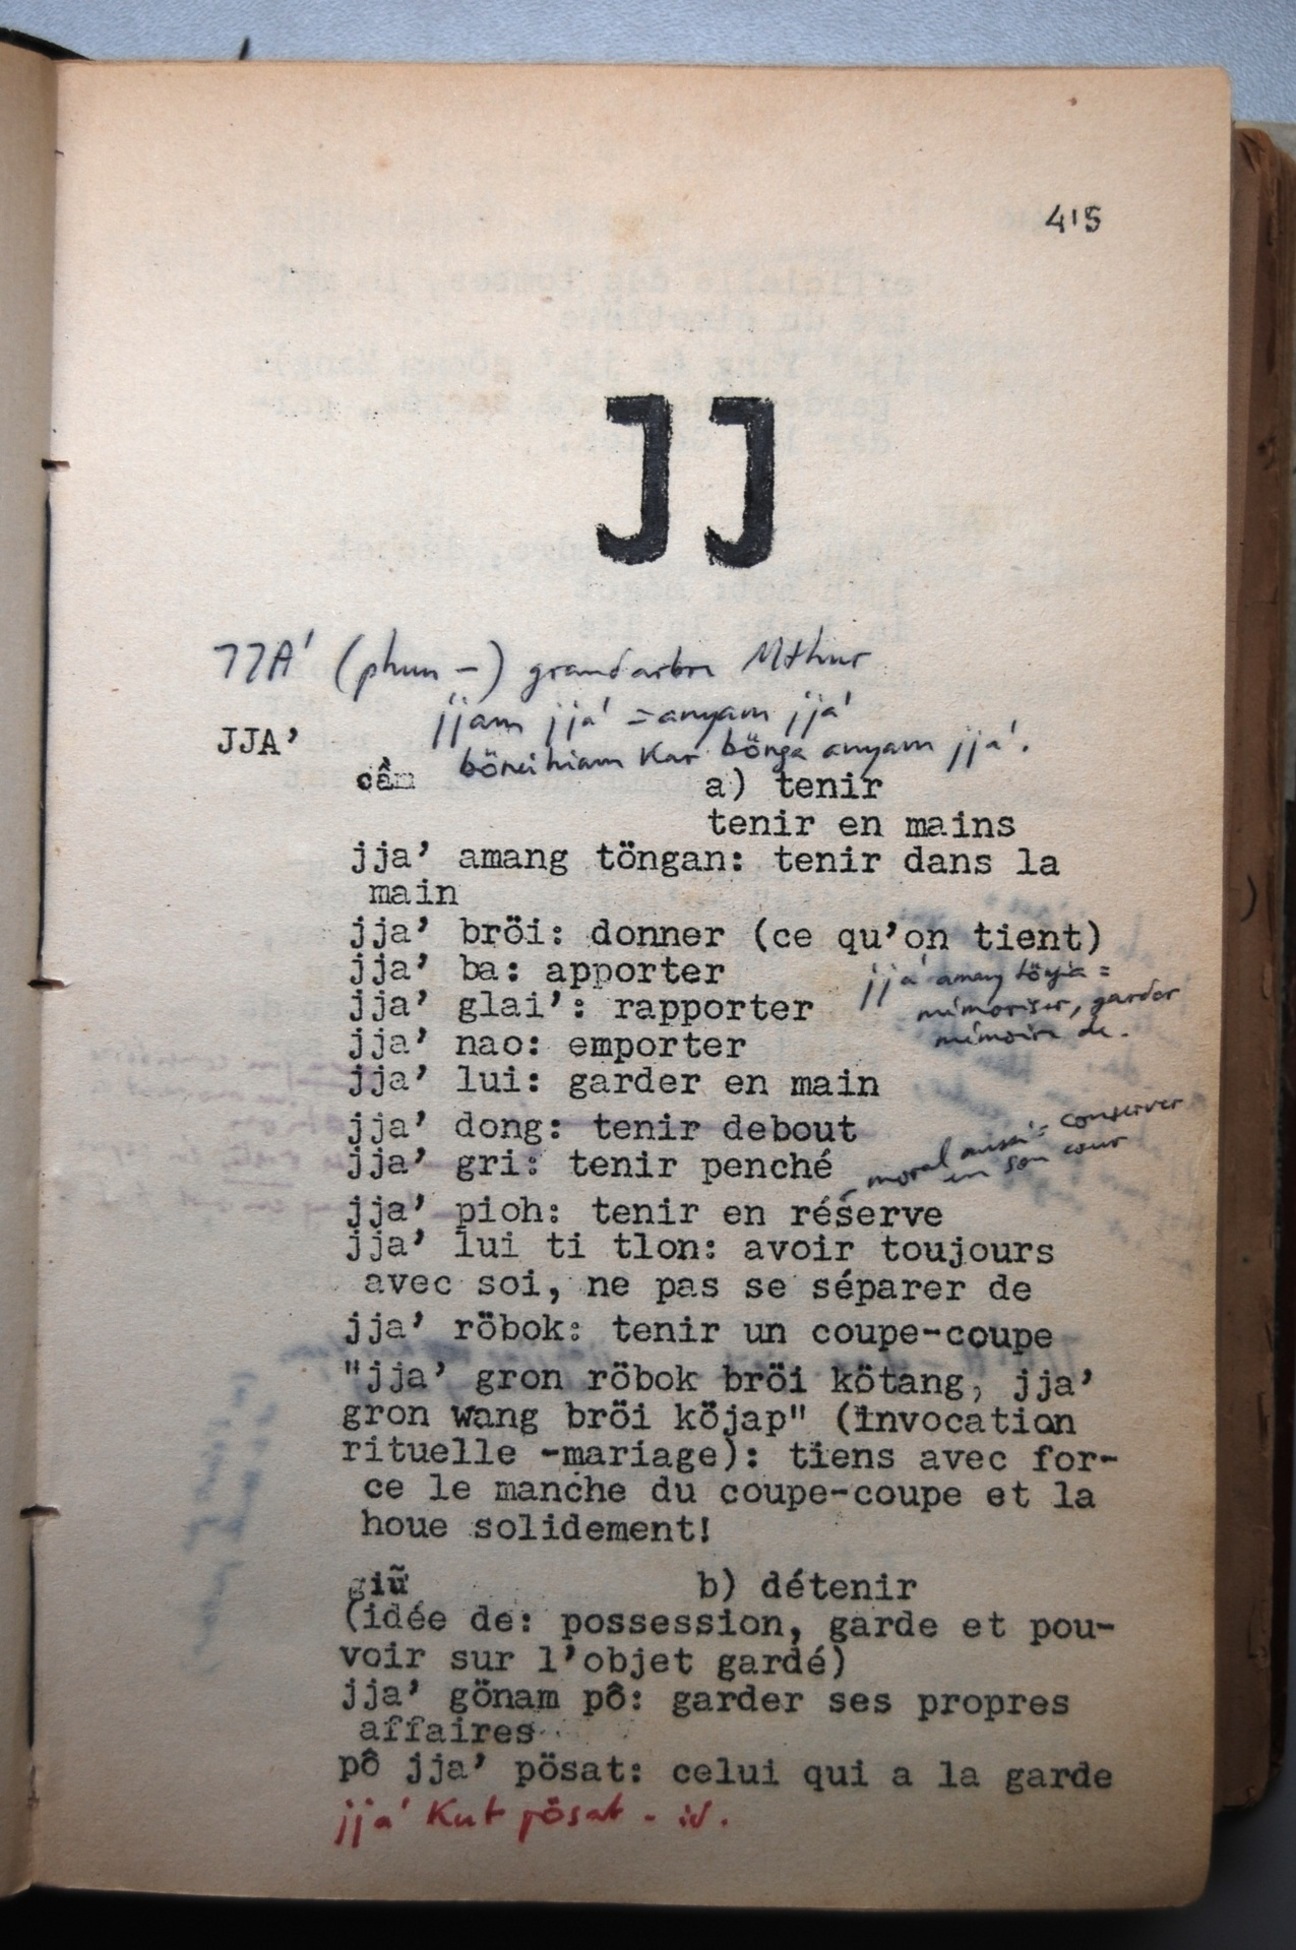 415
JJ
JJA' (phun -) grand arbre Mthur
jjam jja' = anyam jja'
JJA'
hiam Kar bönga anyam jja'.
câm
a) tenir
tenir en mains
jja' amang töngan: tenir dans la
main
jja' bröi: donner (ce qu'on tient)
jja' ba: apporter
jja' amang =
jja' glai': rapporter
mémoriser, garder
mémoire de.
jja' nao: emporter
jja' lui: garder en main
jja' dong: tenir debout
moral aussi = conserver
en son cœur
jja' gri: tenir penché
jja' pioh: tenir en réserve
jja' lui ti tlon: avoir toujours
avec soi, ne pas se séparer de
jja' röbok: tenir un coupe-coupe
"jja' gron röbok bröi kötang, jja'
gron wang bröi köjap" (invocation
rituelle -mariage): tiens avec for-
ce le manche du coupe-coupe et la
houe solidement!
giữ
b) détenir
(idée de: possession, garde et pou-
voir sur l'objet gardé)
jja' gönam pô: garder ses propres
affaires
pô jja' pösat: celui qui a la garde
jja' Kut pösat - id.